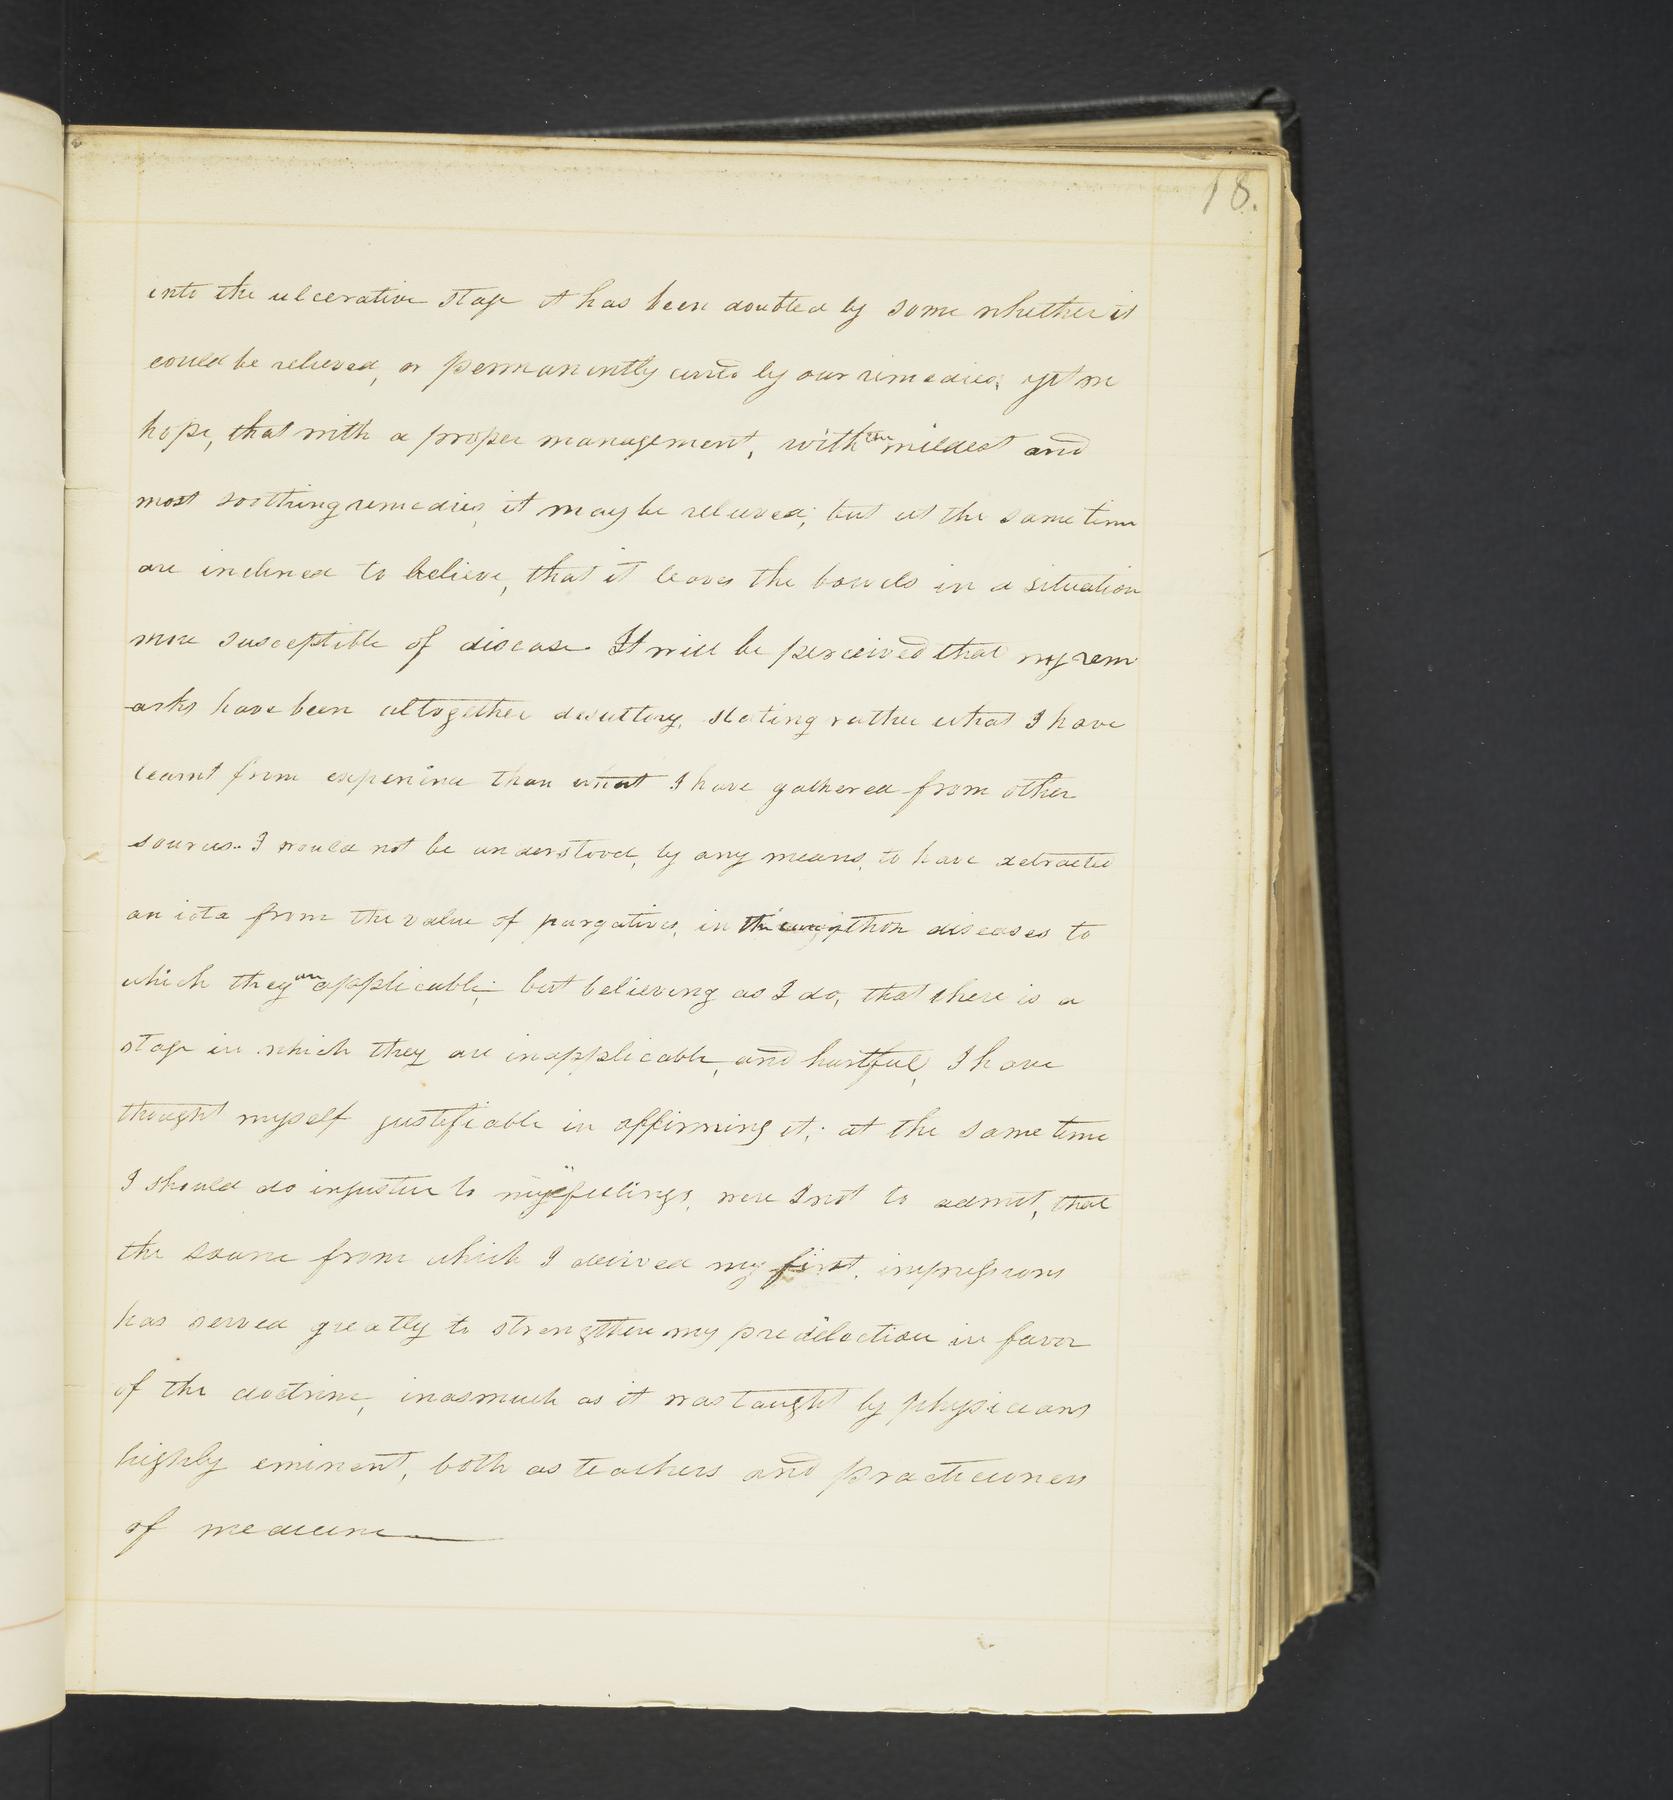 18.
into the ulcerative stage it has been doubted by some whether it
could be relieved, or permanently cured by our remedies; yet we
hope, that with a proper management, with the mildest and
most soothing remedies, it may be relieved; but at the same time
are inclined to believe, that it leaves the bowels in a situation
more susceptible of disease. It will be perceived that my rem
arks have been altogether desultory, stating rather what I have
learnt from experience than what I have gathered from other
sources. I would not be understood, by any means, to have detracted
an iota from the value of purgatives, in the cure of those diseases to
which they are applicable; but believing as I do, that there is a
stage in which they are inapplicable, and hurtful, I have
thought myself justifiable in affirming it; at the same time
I should do injustice to my feelings, were I not to admit, that
the source from which I derived my first impressions
has served greatly to strengthen my predilection in favor
of the doctrine, inasmuch as it was taught by physicians
highly eminent, both as teachers and practicioners
of medicine